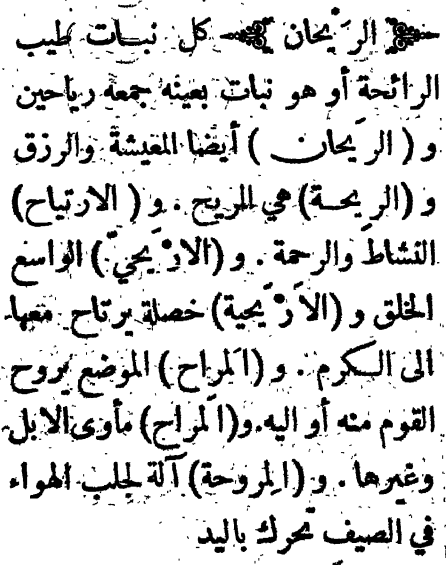 ﴿ الرَيْحان ﴾ كل نبات طيب
الرائحة أو هو نبات بعينه جمعه رياحين
و ( الريحان ) أيضا المعيشة والرزق
و (الريحة) هي الريح . و ( الارتياح)
النشاط والرحمة . و (الارْيحيّ) الواسع
الخلق و (الاَرْيحية) خصلة يرتاح معها
الى الكرم . و (المَراح) الموضع يروح
القوم منه أو اليه. و(المُراح) مأوى الابل
وغيرها . و (المِروحة) آلة لجلب الهواء
في الصيف تحرك باليد